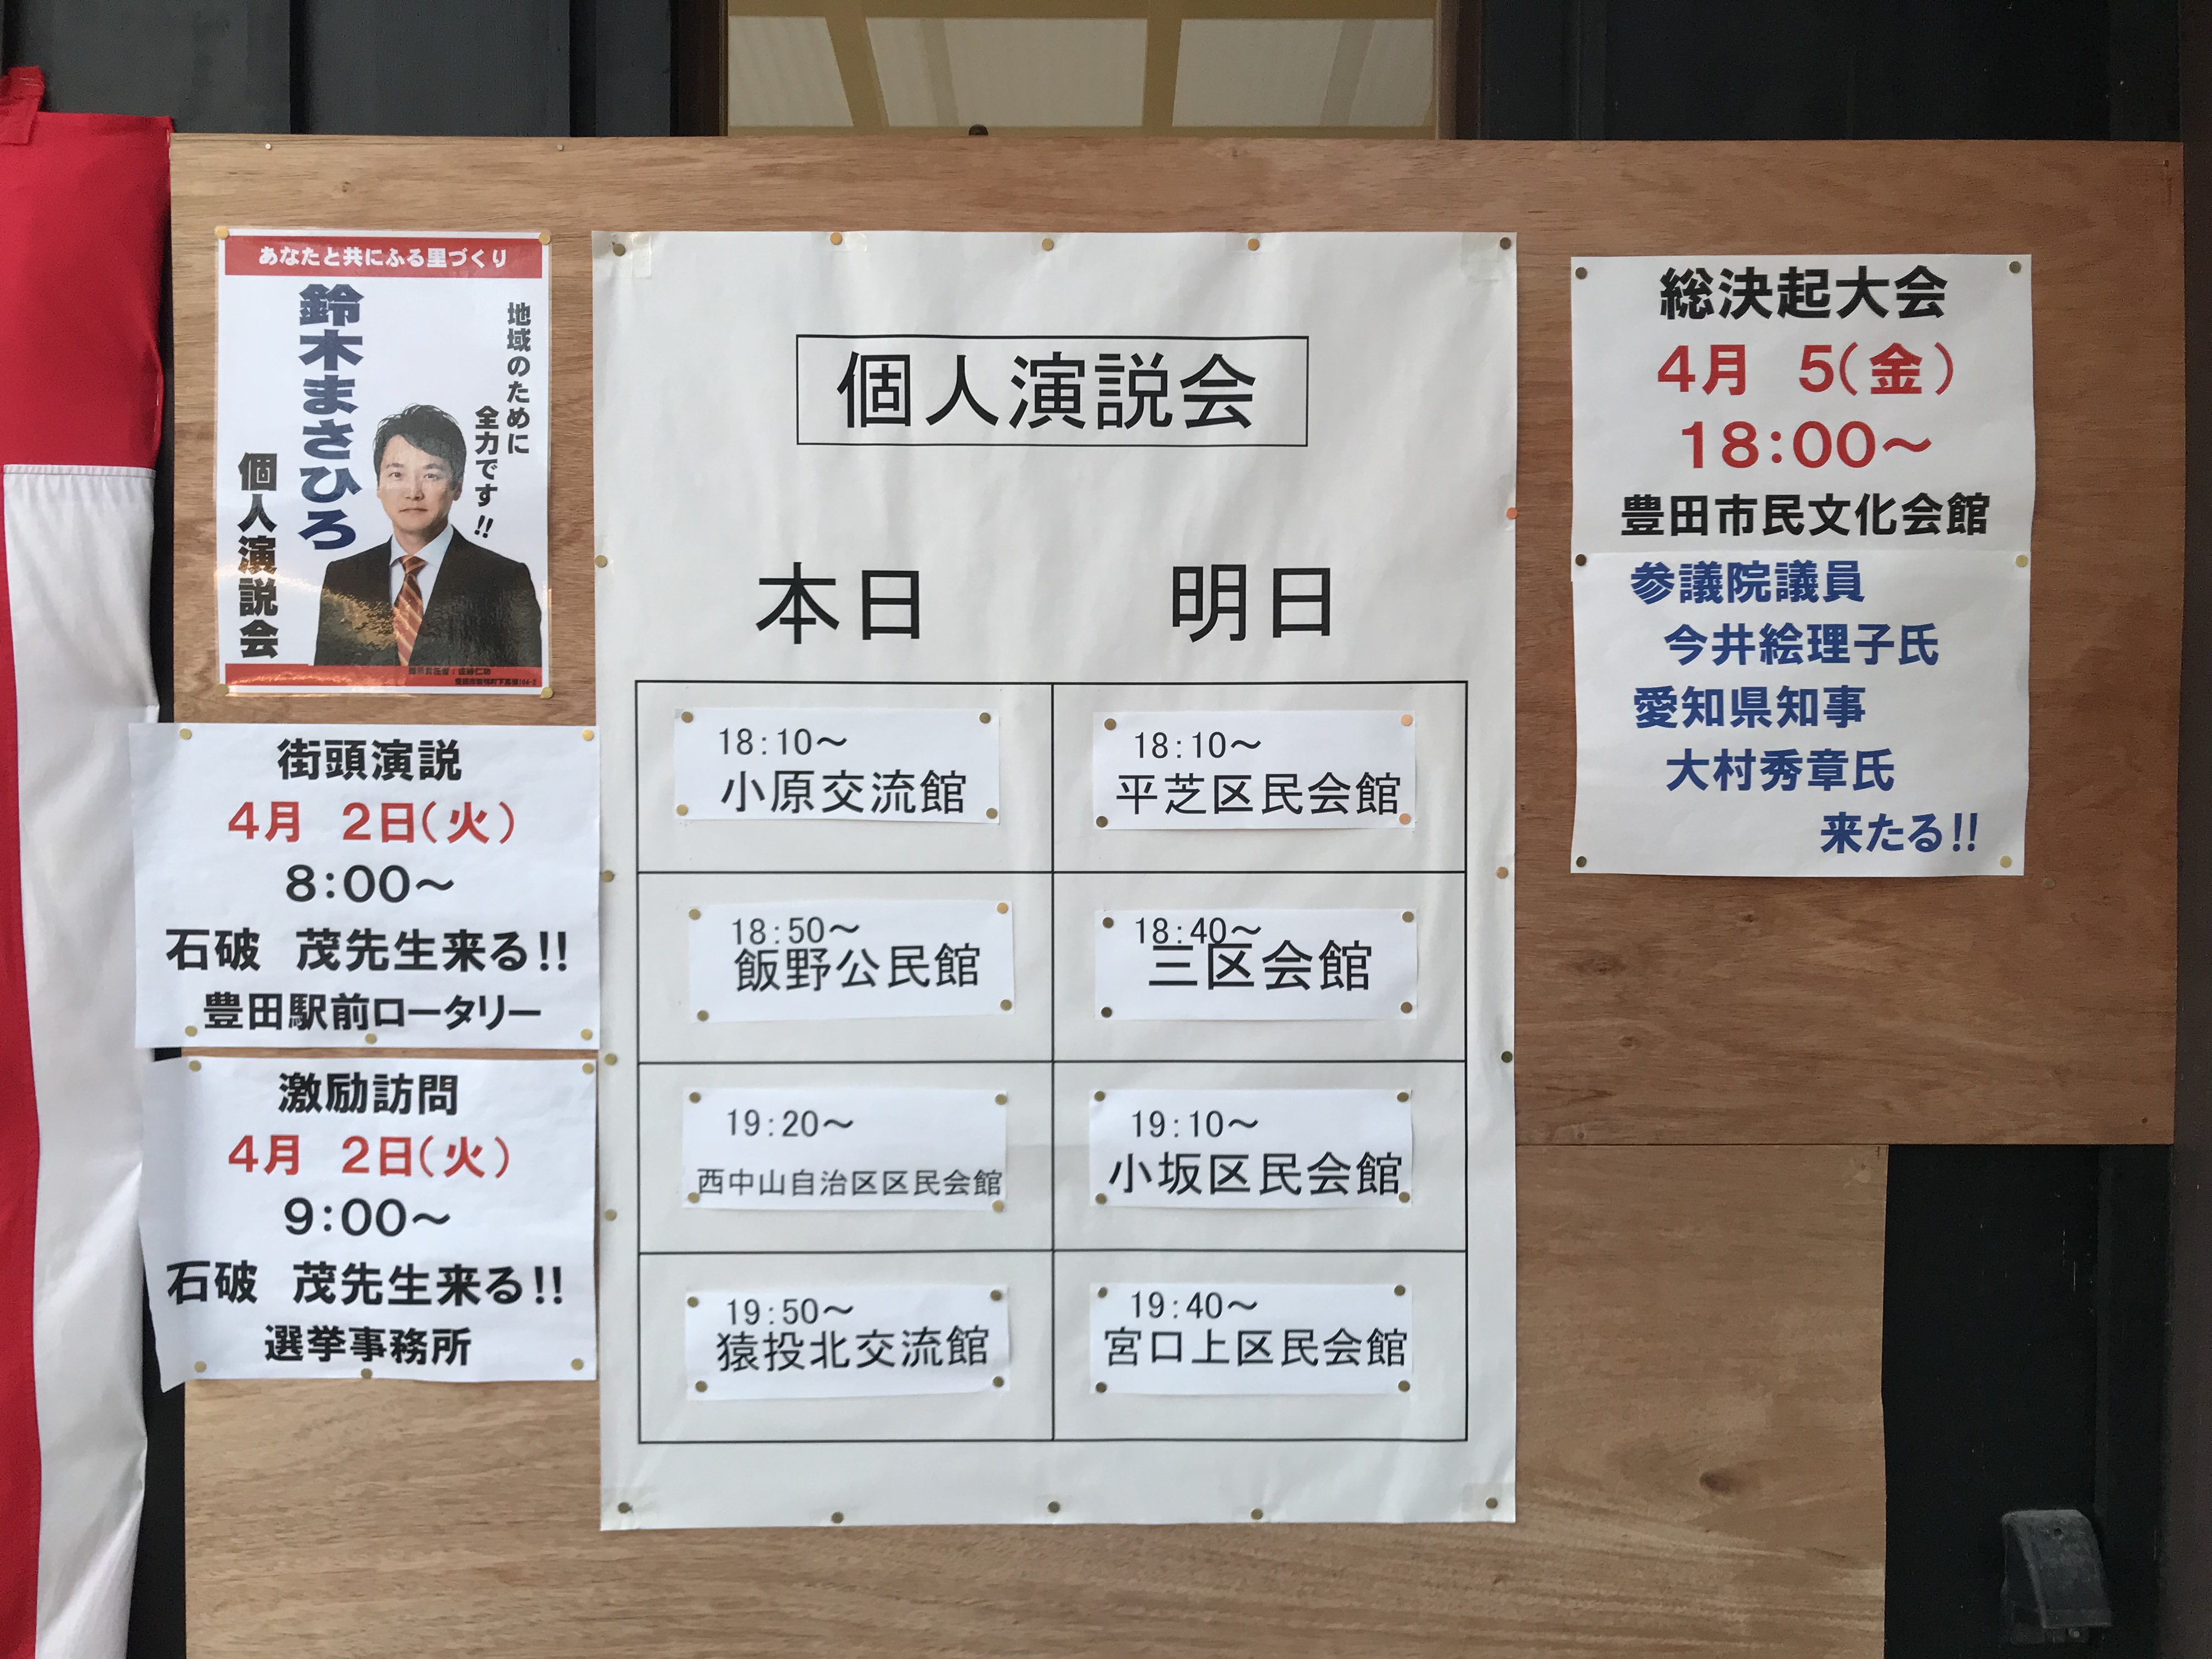 あなたと共にふる里づくり
地域のために
全力です!!
鈴木まさひろ
個人演説会
街頭演説
4月 2日(火)
8:00～
石破 茂先生来る!!
豊田駅前ロータリー
激励訪問
4月 2日(火)
9:00～
石破 茂先生来る!!
選挙事務所
個人演説会
本日 明日
18:10～
小原交流館
18:10～
平芝区民会館
18:50～
飯野公民館
18:40～
三区会館
19:20～
西中山自治区区民会館
19:10～
小坂区民会館
19:50～
猿投北交流館
19:40～
宮口上区民会館
総決起大会
4月 5(金)
18:00～
豊田市民文化会館
参議院議員
今井絵理子氏
愛知県知事
大村秀章氏
来たる!!